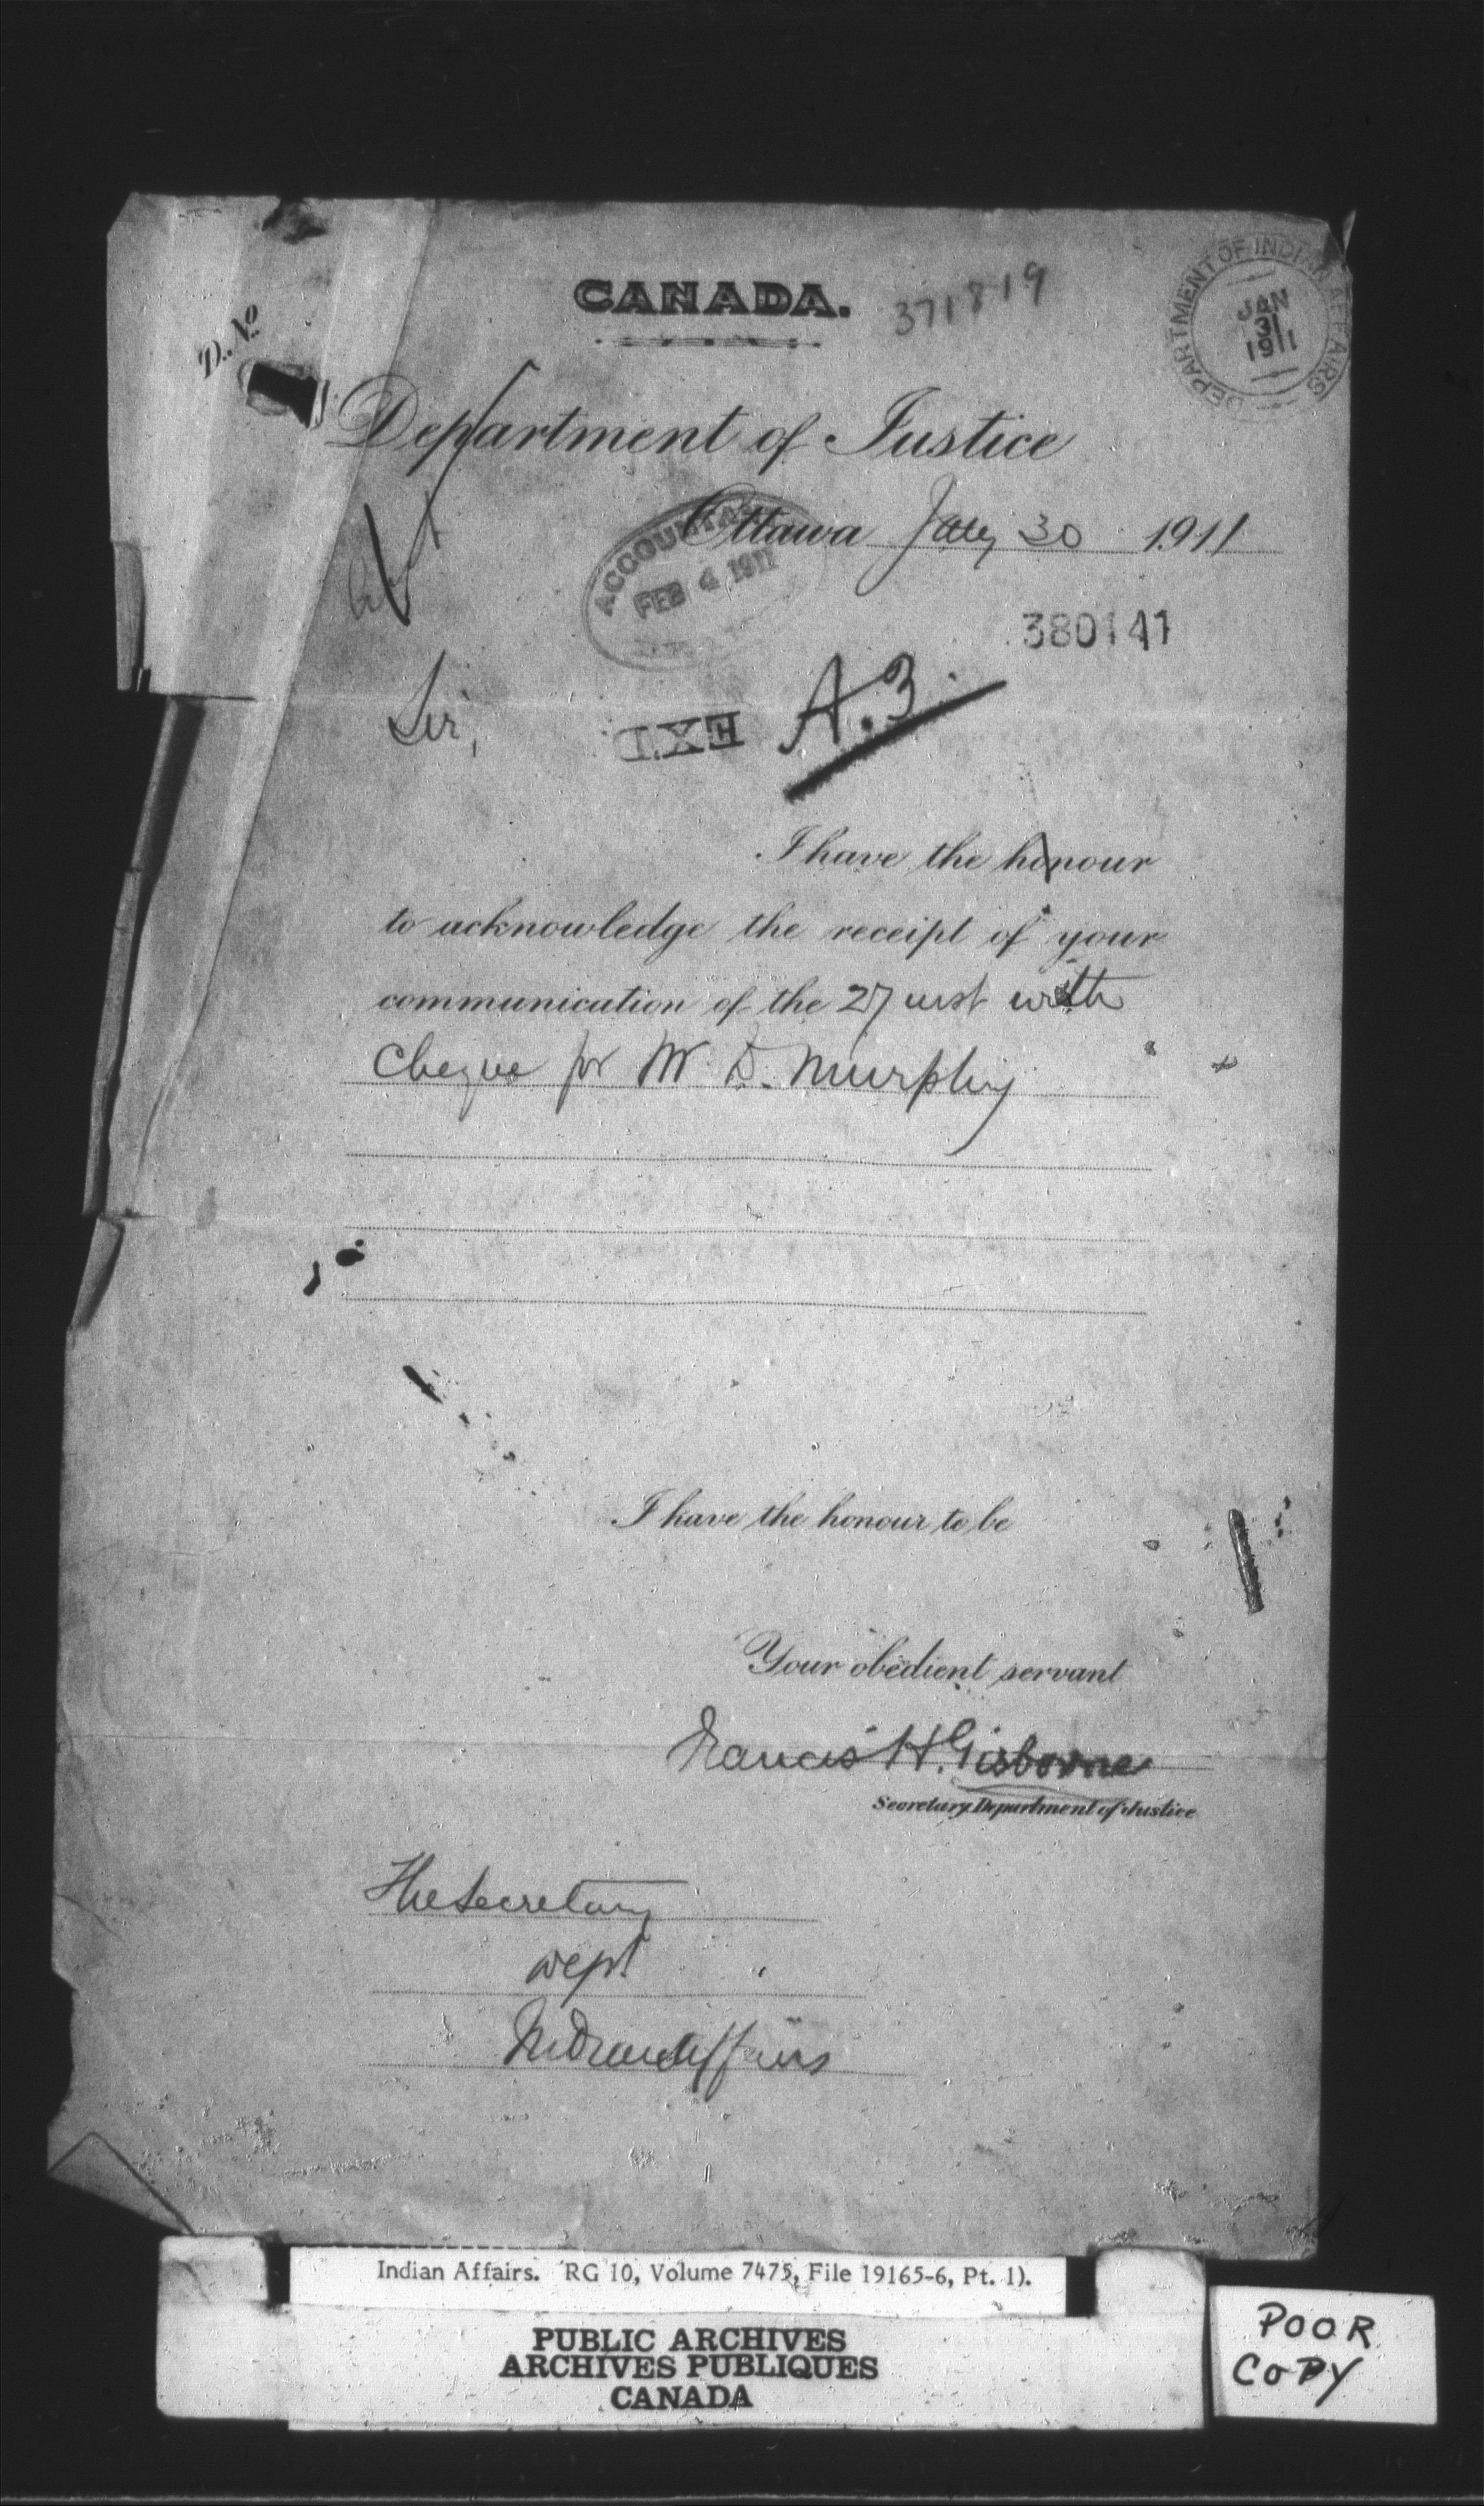 DEPARTMENT OF INDIAN AFFAIRS
JAN
31
1911
CANADA. 371819
D. No
Department of Justice
Ottawa Jany 30 1911
FEB 4 1911
380141
Sir,
A.3.
I have the honour
to acknowledge the receipt of your
communication of the 27 inst with
Cheque for W. D. Murphy
I have the honour to be
Your obedient servant
Francis H. Gisborne
Secretary Department of Justice
The Secretary
Dept
Indian Affairs
Indian Affairs. RG 10, Volume 7475, File 19165-6, Pt. 1).
PUBLIC ARCHIVES
ARCHIVES PUBLIQUES
CANADA
POOR
COPY